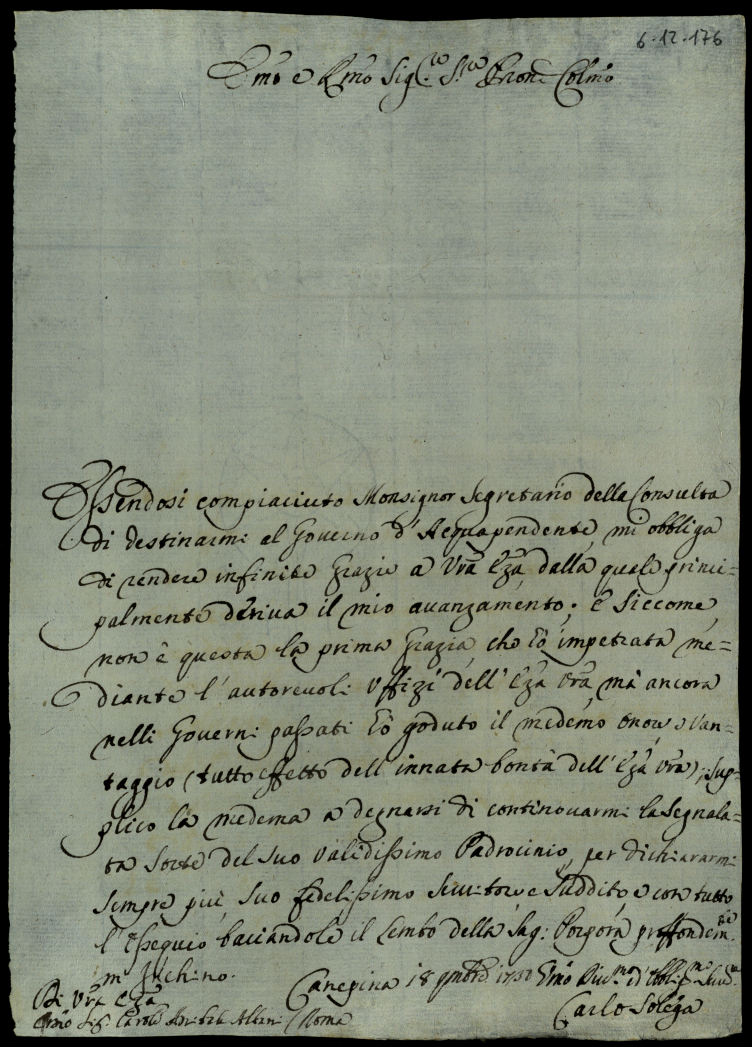 6.12.176
Emo e Rmo Sig.re S.re Pron Colmo
Essendosi compiaciuto Monsignor Segretario della Consulta
di destinarmi al Governo d'Acquapendente, mi obbliga
di rendere infinite grazie a Vrã Eza, dalla quale princi=
palmente deriva il mio avanzamento; e siccome
non è questa la prima grazia, che hò impetrata me=
diante l'autorevoli Uffizi dell'Eza Vrã, mà ancora
nelli Governi passati hò goduto il medemo onore, e Van=
taggio (tutto effetto dell'innata bontà dell'Eza Vrã); sup=
plico la medema a degnarsi di continouarmi la segnala=
ta sorte del suo Validissimo Padrocinio, per dichiararmi
sempre più suo fedelissimo servitore e suddito, e con tutto
l'ossequio baciandole il Lembo della Sag: Porpora proffondam.te
m'inchino.
Di Vrã Eza
Canepina 18 9mbre 1751
Emo Sig. Card. Annibale Albani / Roma
Carlo Solega